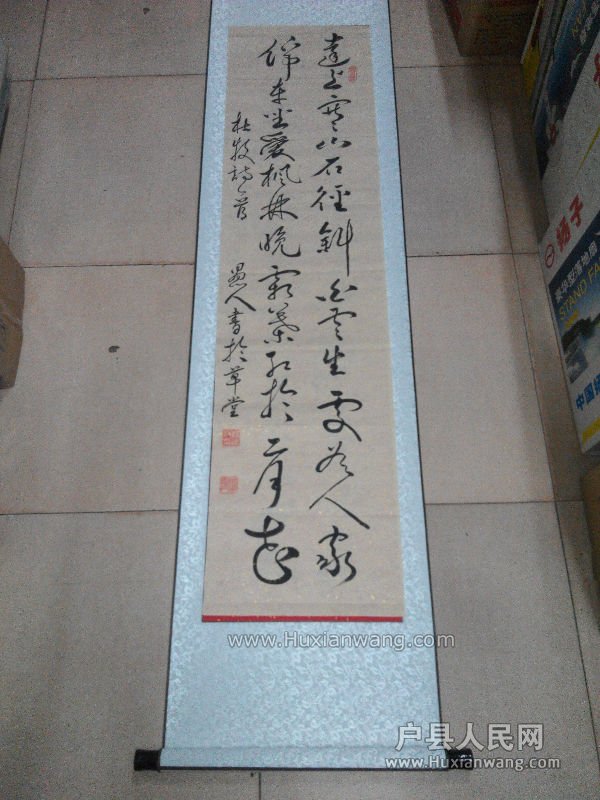 遠上寒山石徑斜白雲生處有人家
停車坐愛楓林晚霜葉紅於二月花
杜牧詩一首 愚人書於草堂
扬子
豪华型落地扇
STAND FA
中国
www.Huxianwang.com
户县人民网
www.Huxianwang.com